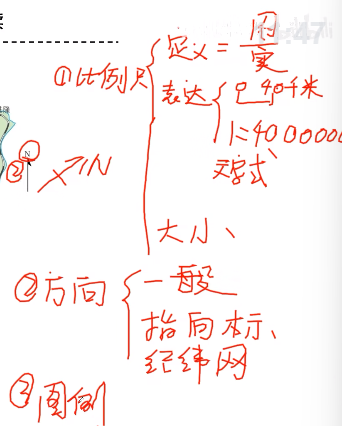 读
①比例尺
定义 = 图/实
表达
0 40千米
1:4000000
文字式
大小、
N
②
N
②方向
一般
指向标、
经纬网
③图例